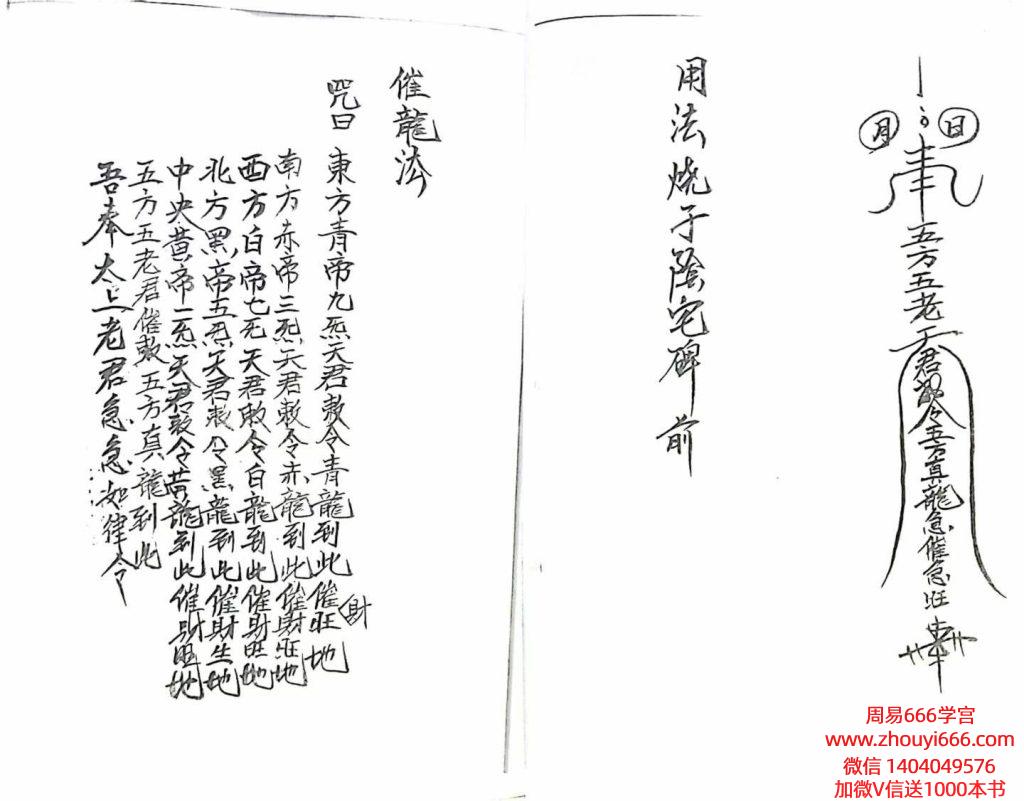 日
月
奉
五方五老天君敕令五方真龍急催急旺
用法烧于陰宅碑前
催龍法
咒曰
東方青帝九炁天君敕令青龍到此催財旺地
南方赤帝三炁天君敕令赤龍到此催財旺地
西方白帝七炁天君敕令白龍到此催財旺地
北方黑帝五炁天君敕令黑龍到此催財生地
中央黄帝一炁天君敕令黄龍到此催財旺地
五方五老君催敕五方真龍到此
吾奉太上老君急急如律令
周易666学宫
www.zhouyi666.com
微信 1404049576
加微V信送1000本书